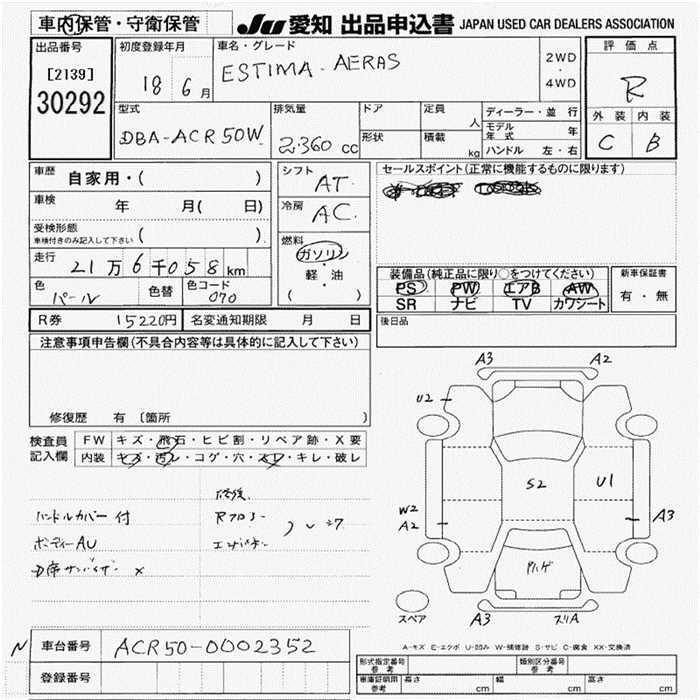 車内保管・守衛保管
JU 愛知 出品申込書 JAPAN USED CAR DEALERS ASSOCIATION
出品番号
[2139]
30292
初度登録年月
18 6月
車名・グレード
ESTIMA・AERAS
2WD
・
4WD
評価点
R
外装 内装
C B
型式
DBA-ACR50W
排気量
2.360 cc
ドア
形状
定員 人
積載 kg
ディーラー・並行
モデル年式 年
ハンドル 左・右
車歴 自家用・( )
車検 年 月( 日)
受検形態
車検付きのみ記入して下さい ( )
走行 21万6千058km
色 パール 色替 色コード 070
シフト AT
冷房 AC
燃料
ガソリン
・
軽・油
( )
セールスポイント(正常に機能するものに限ります)
装備品(純正品に限り○をつけてください)
PS PW エアB AW
SR ナビ TV カワシート
新車保証書
有・無
R券 15220円 名変通知期限 月 日
後日品
注意事項申告欄(不具合内容等は具体的に記入して下さい)
修復歴 有 〔箇所 〕
検査員記入欄
FW キズ・飛石・ヒビ割・リペア跡・X要
内装 キズ・汚レ・コゲ・穴・スレ・キレ・破レ
ハンドルカバー付
ボディーAU
D席サンバイザー ×
修復
Rフロアー
エンドパネー
A3 A2
U2
S2 U1
W2
A2
A3
ハゲ
A3 スリA
スペア
A-キズ E-エクボ U-凹み W-補修跡 S-サビ C-腐食 XX-交換済
N 車台番号 ACR50-0002352
登録番号
型式指定番号 参考
類別区分番号 参考
車庫証明用 参考 長さ cm 幅 cm 高さ cm